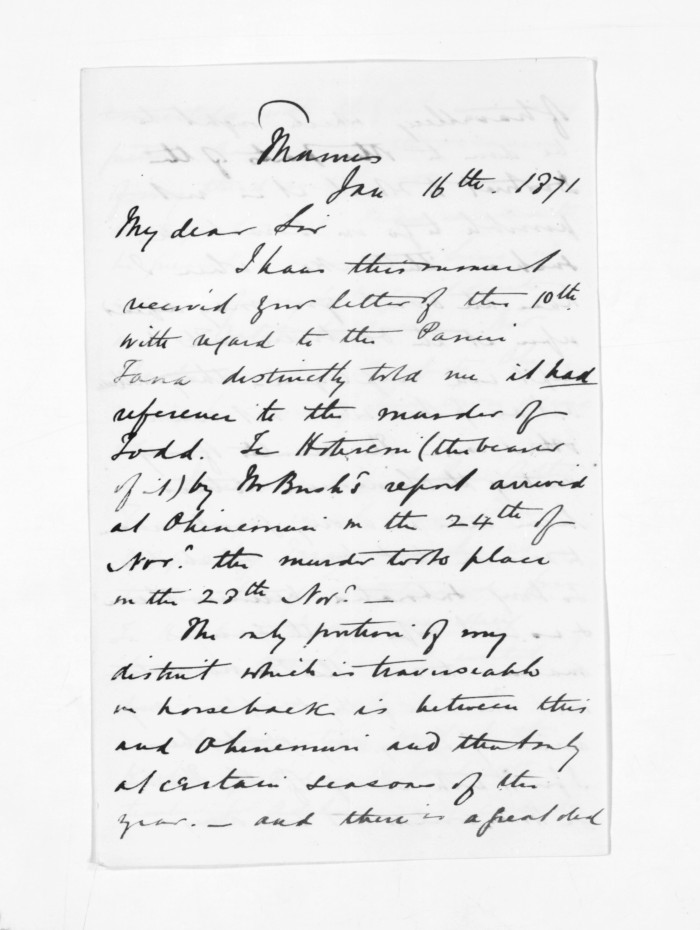 Thames
Jan 16th. 1871
My dear Sir
I have this moment
received your letter of the 10th
with regard to the Panui
Tana distinctly told me it had
reference to the murder of
Todd. Te Hotereni (the bearer
of it) by Mr Bush's report arrived
at Ohinemuri on the 24th of
Novr. the murder took place
on the 28th Novr. —
The only portion of my
district which is traverseable
on horseback is between this
and Ohinemuri and that only
at certain seasons of the
year. — and there is a great deal